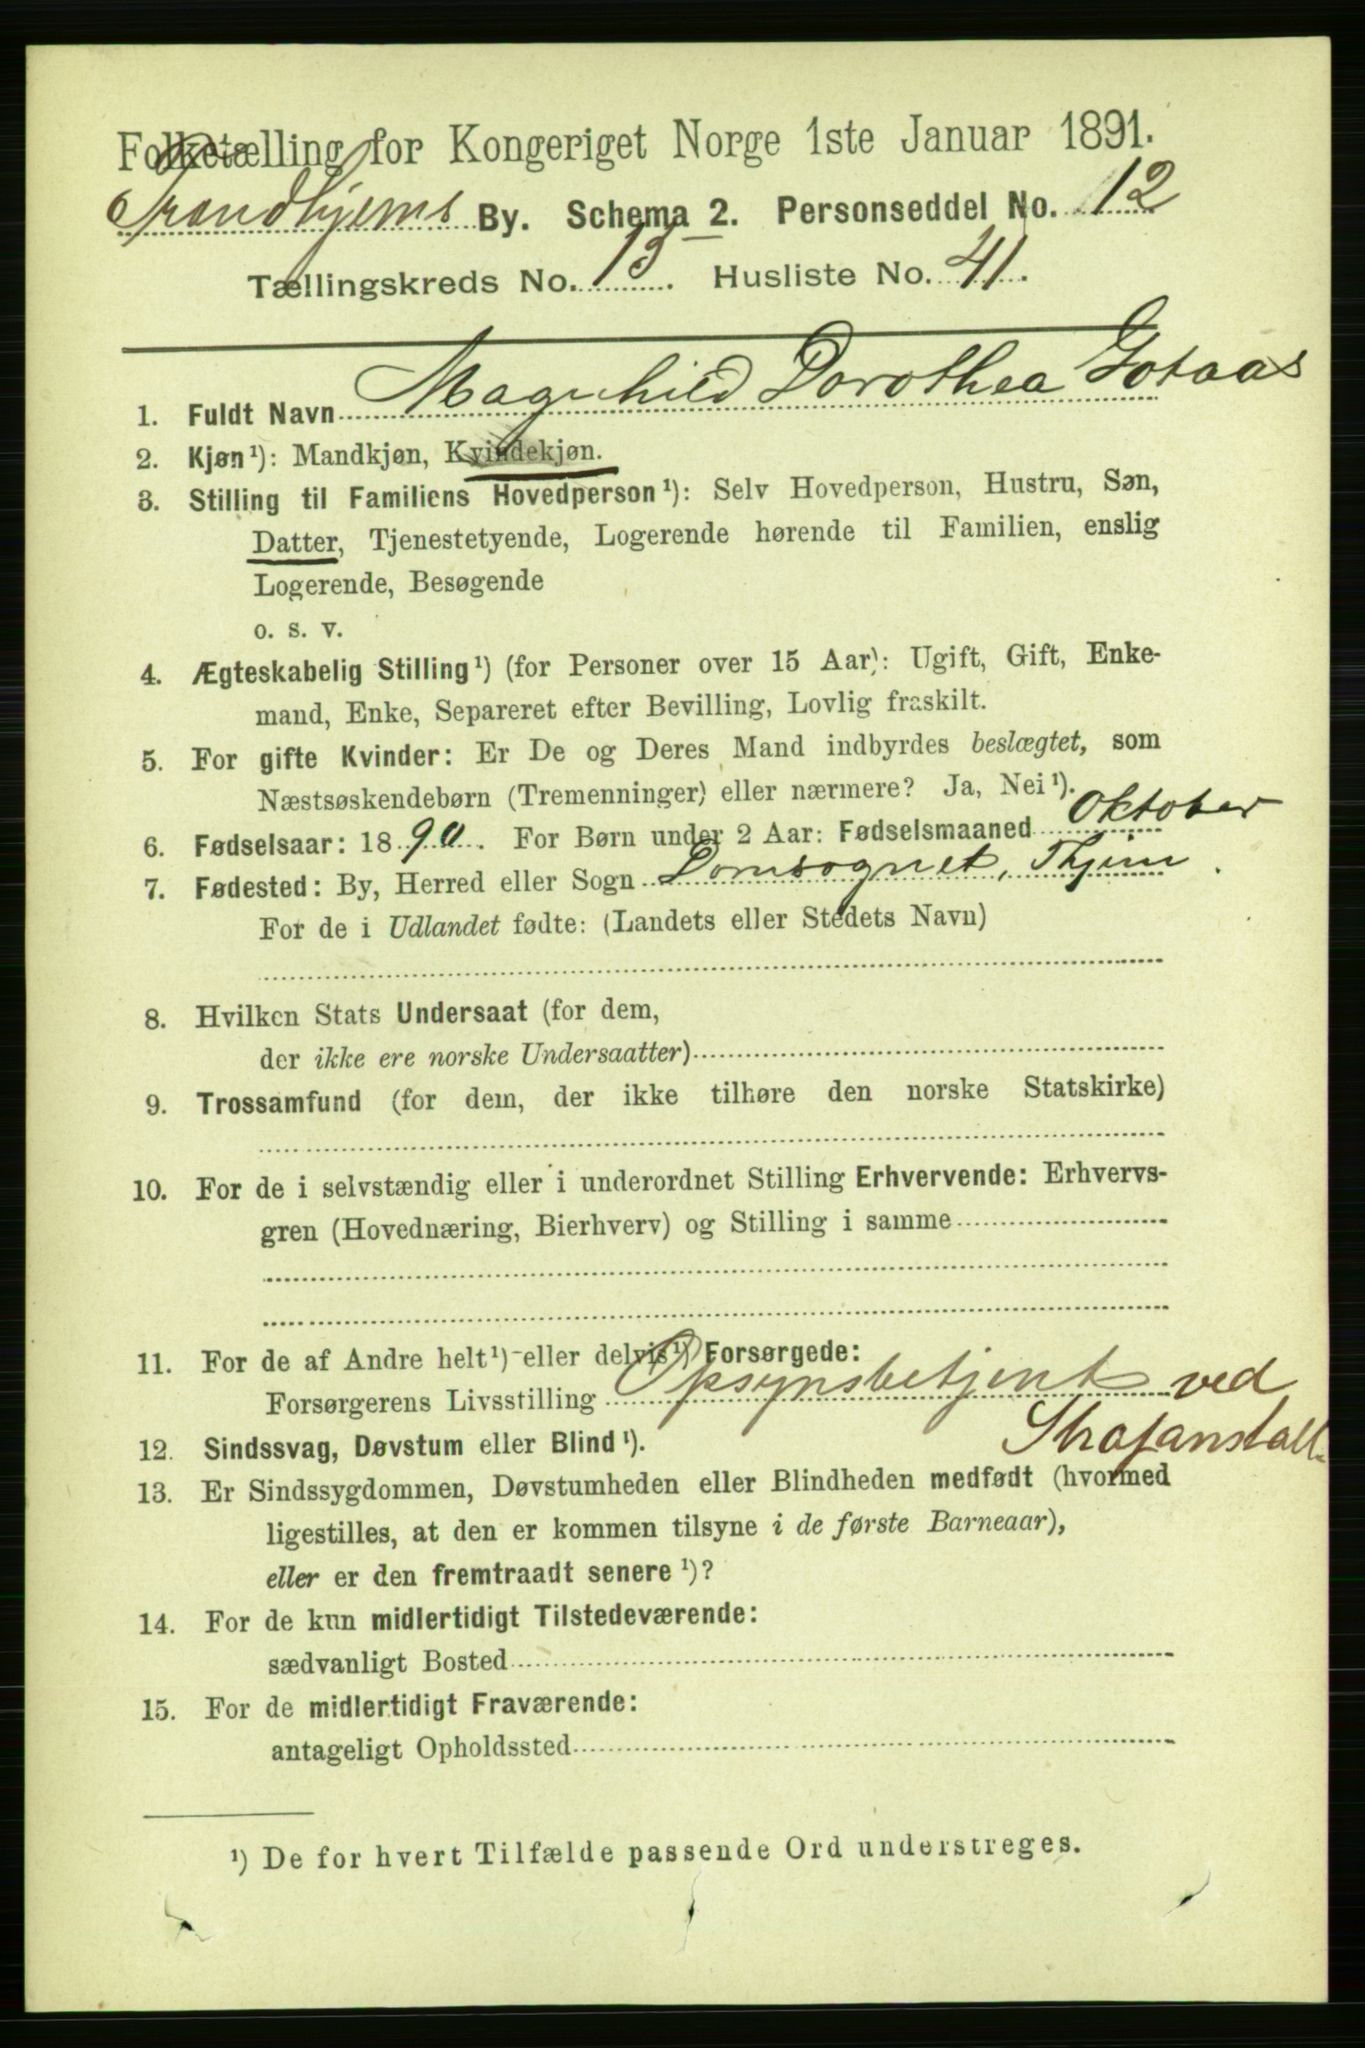 Folketælling for Kongeriget Norge 1ste Januar 1891.
Trondhjems By. Schema 2. Personseddel No. 12
Tællingskreds No. 13. Husliste No. 41.
1. Fuldt Navn Magnhild Dorothea Gotaas
2. Kjøn¹): Mandkjøn, Kvindekjøn.
3. Stilling til Familiens Hovedperson¹): Selv Hovedperson, Hustru, Søn,
Datter, Tjenestetyende, Logerende hørende til Familien, enslig
Logerende, Besøgende
o. s. v.
4. Ægteskabelig Stilling¹) (for Personer over 15 Aar): Ugift, Gift, Enke-
mand, Enke, Separeret efter Bevilling, Lovlig fraskilt.
5. For gifte Kvinder: Er De og Deres Mand indbyrdes beslægtet, som
Næstsøskendebørn (Tremenninger) eller nærmere? Ja, Nei¹).
6. Fødselsaar: 1890. For Børn under 2 Aar: Fødselsmaaned Oktober
7. Fødested: By, Herred eller Sogn Domsognet, Thjem.
For de i Udlandet fødte: (Landets eller Stedets Navn)
8. Hvilken Stats Undersaat (for dem,
der ikke ere norske Undersaatter)
9. Trossamfund (for dem, der ikke tilhøre den norske Statskirke)
10. For de i selvstændig eller i underordnet Stilling Erhvervende: Erhvervs-
gren (Hovednæring, Bierhverv) og Stilling i samme
11. For de af Andre helt¹) eller delvis¹) Forsørgede:
Forsørgerens Livsstilling Opsynsbetjent ved
Strafanstalt.
12. Sindssvag, Døvstum eller Blind¹).
13. Er Sindssygdommen, Døvstumheden eller Blindheden medfødt (hvormed
ligestilles, at den er kommen tilsyne i de første Barneaar),
eller er den fremtraadt senere¹)?
14. For de kun midlertidigt Tilstedeværende:
sædvanligt Bosted
15. For de midlertidigt Fraværende:
antageligt Opholdssted
¹) De for hvert Tilfælde passende Ord understreges.